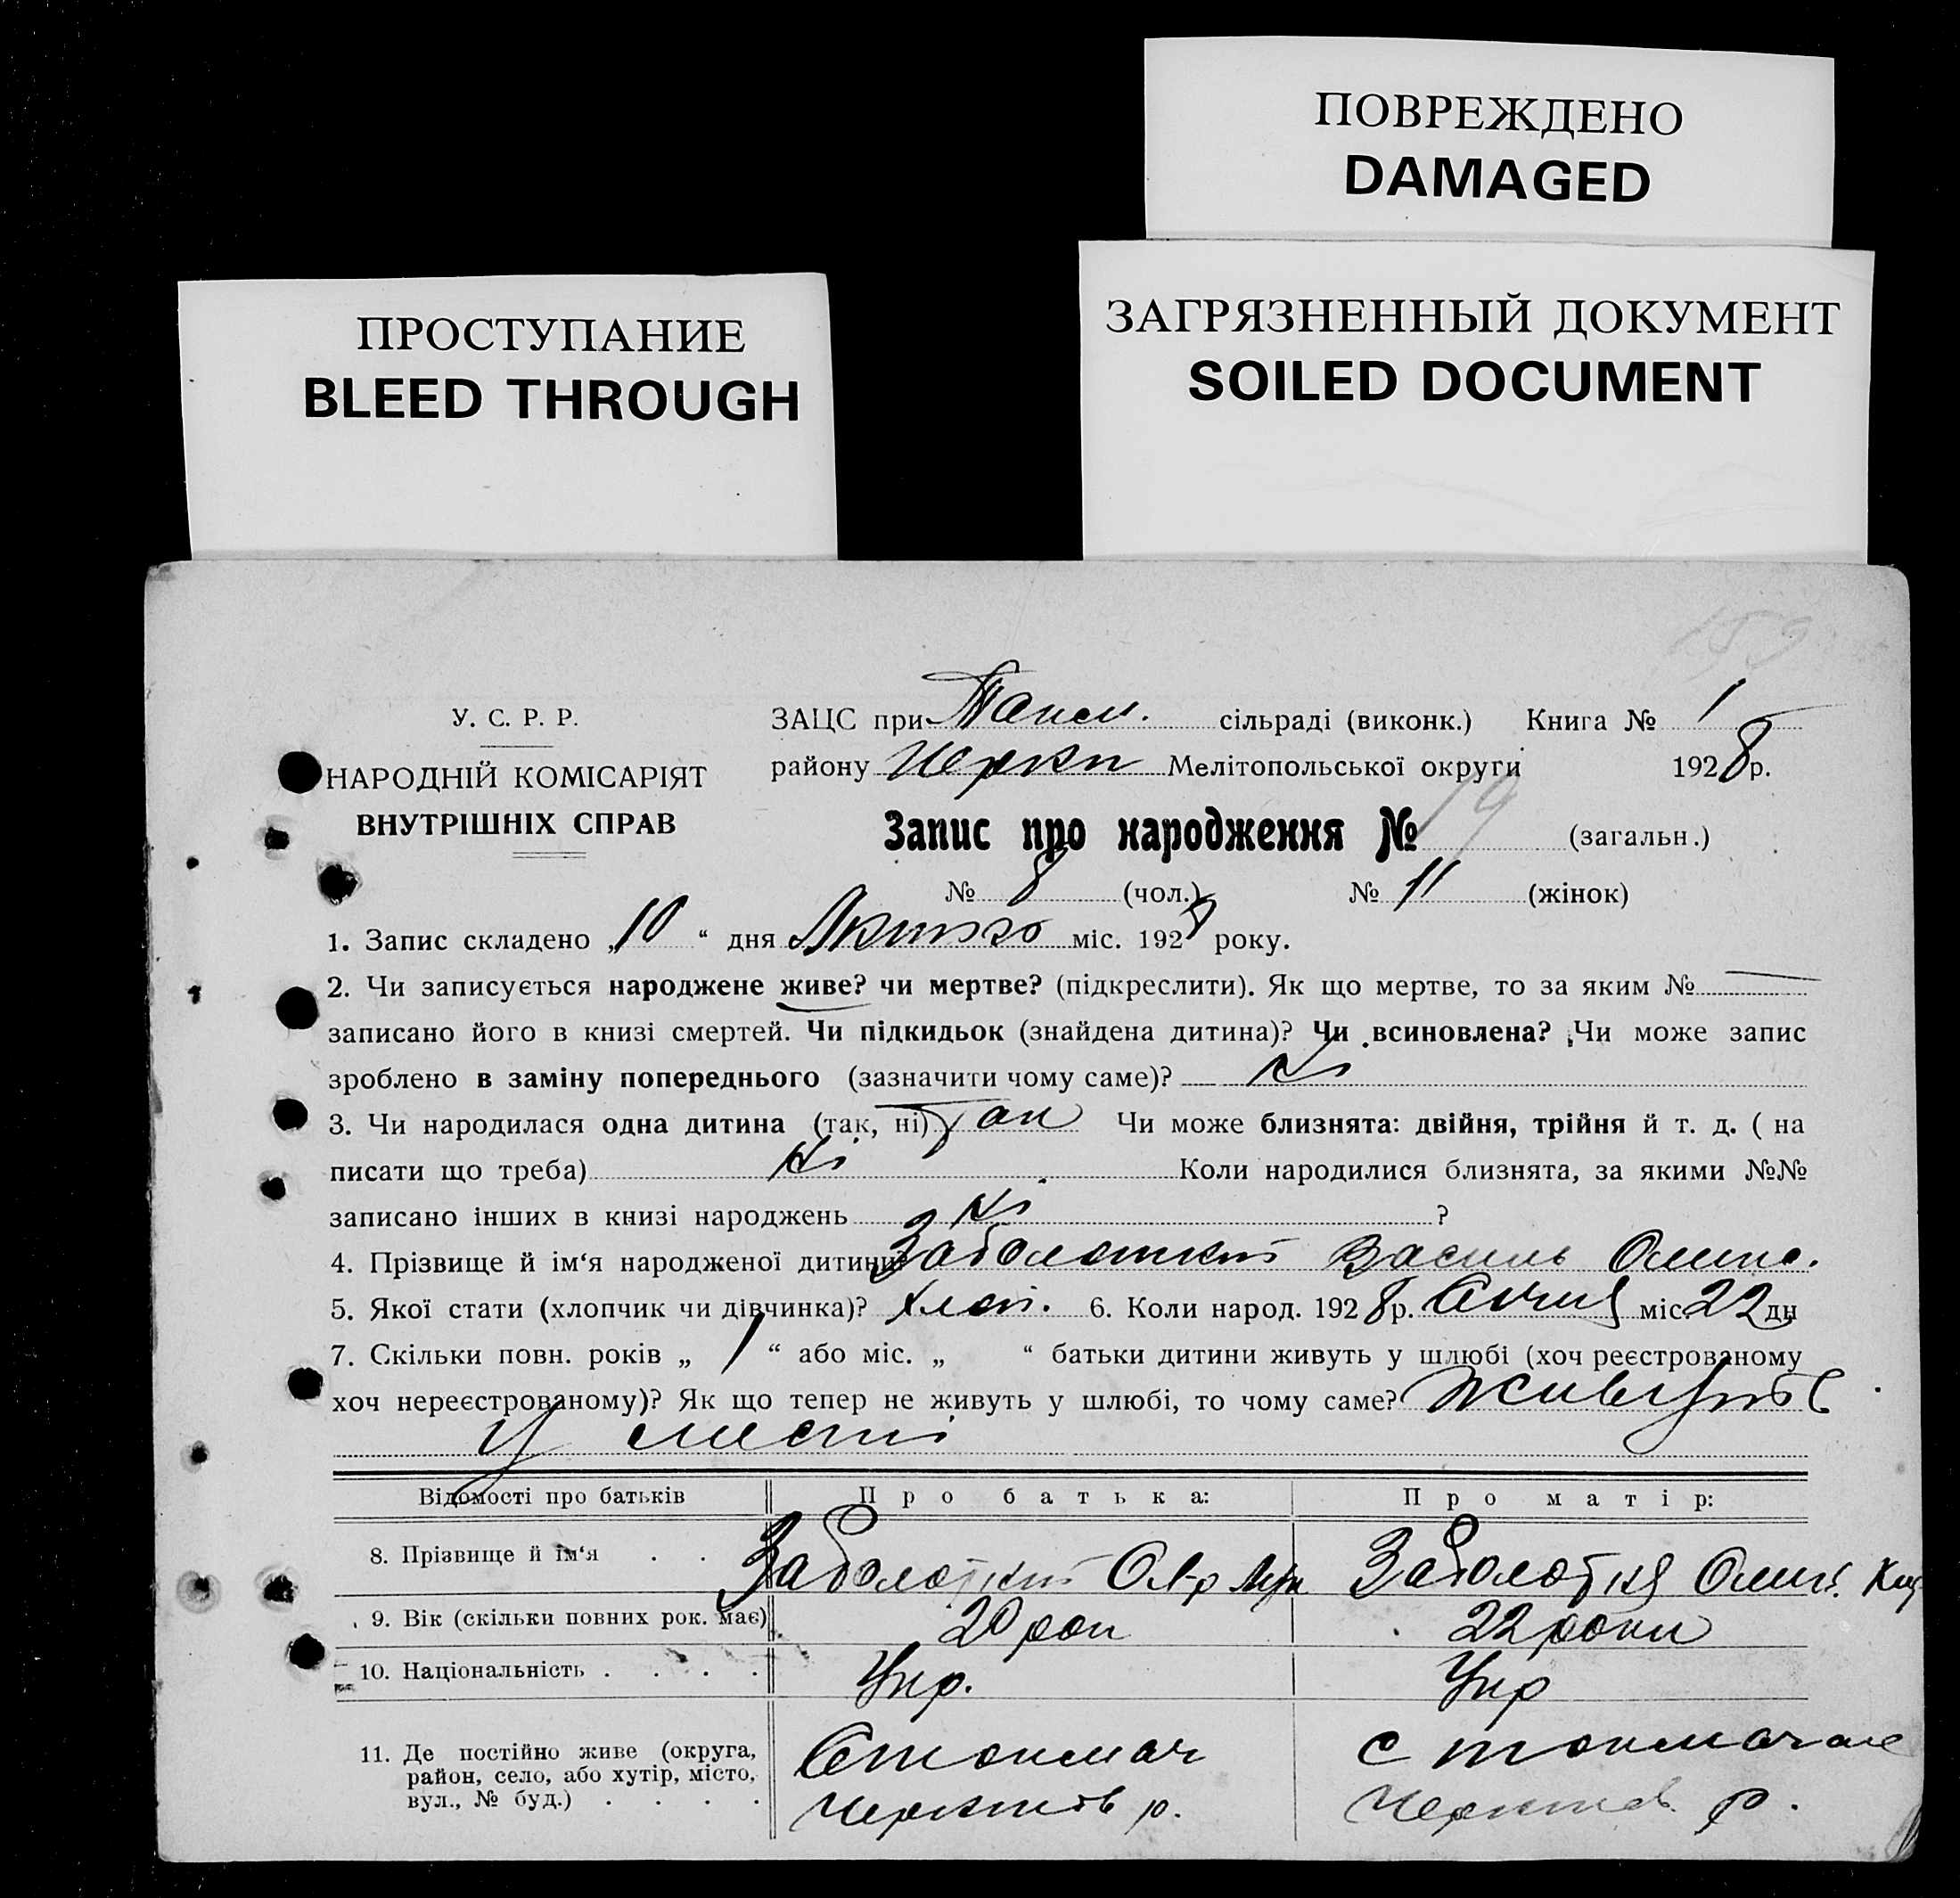 ПОВРЕЖДЕНО
DAMAGED
ПРОСТУПАНИЕ
BLEED THROUGH
ЗАГРЯЗНЕННЫЙ ДОКУМЕНТ
SOILED DOCUMENT
159
У. С. Р. Р.
НАРОДНІЙ КОМІСАРІЯТ
ВНУТРІШНІХ СПРАВ
ЗАЦС при сільраді (виконк.) Книга № 1
району Мелітопольської округи 1928 р.
Запис про народження № 19 (загальн.)
№ 8 (чол.) № 11 (жінок)
1. Запис складено „10“ дня міс. 1928 року.
2. Чи записується народжене живе? чи мертве? (підкреслити). Як що мертве, то за яким № —
записано його в книзі смертей. Чи підкидьок (знайдена дитина)? Чи всиновлена? Чи може запис
зроблено в заміну попереднього (зазначити чому саме)? Ні
3. Чи народилася одна дитина (так, ні) Так Чи може близнята: двійня, трійня й т. д. ( на
писати що треба) Ні Коли народилися близнята, за якими №№
записано інших в книзі народжень Ні ?
4. Прізвище й ім‘я народженої дитини Заболотний Василь
5. Якої стати (хлопчик чи дівчинка)? хлоп. 6. Коли народ. 1928 р. Січня міс. 22 дн
7. Скільки повн. років „ 1 “ або міс. „ “ батьки дитини живуть у шлюбі (хоч реєстрованому
хоч нереєстрованому)? Як що тепер не живуть у шлюбі, то чому саме? Живуть
у
Відомості про батьків Про батька: Про матір:
8. Прізвище й ім‘я . . Заболотний Заболотня
9. Вік (скільки повних рок. має) 20 рок 22 роки
10. Національність . . . . Укр. Укр
11. Де постійно живе (округа,
район, село, або хутір, місто,
вул., № буд.) . . . .
С Токмач с Токмач
р. р.